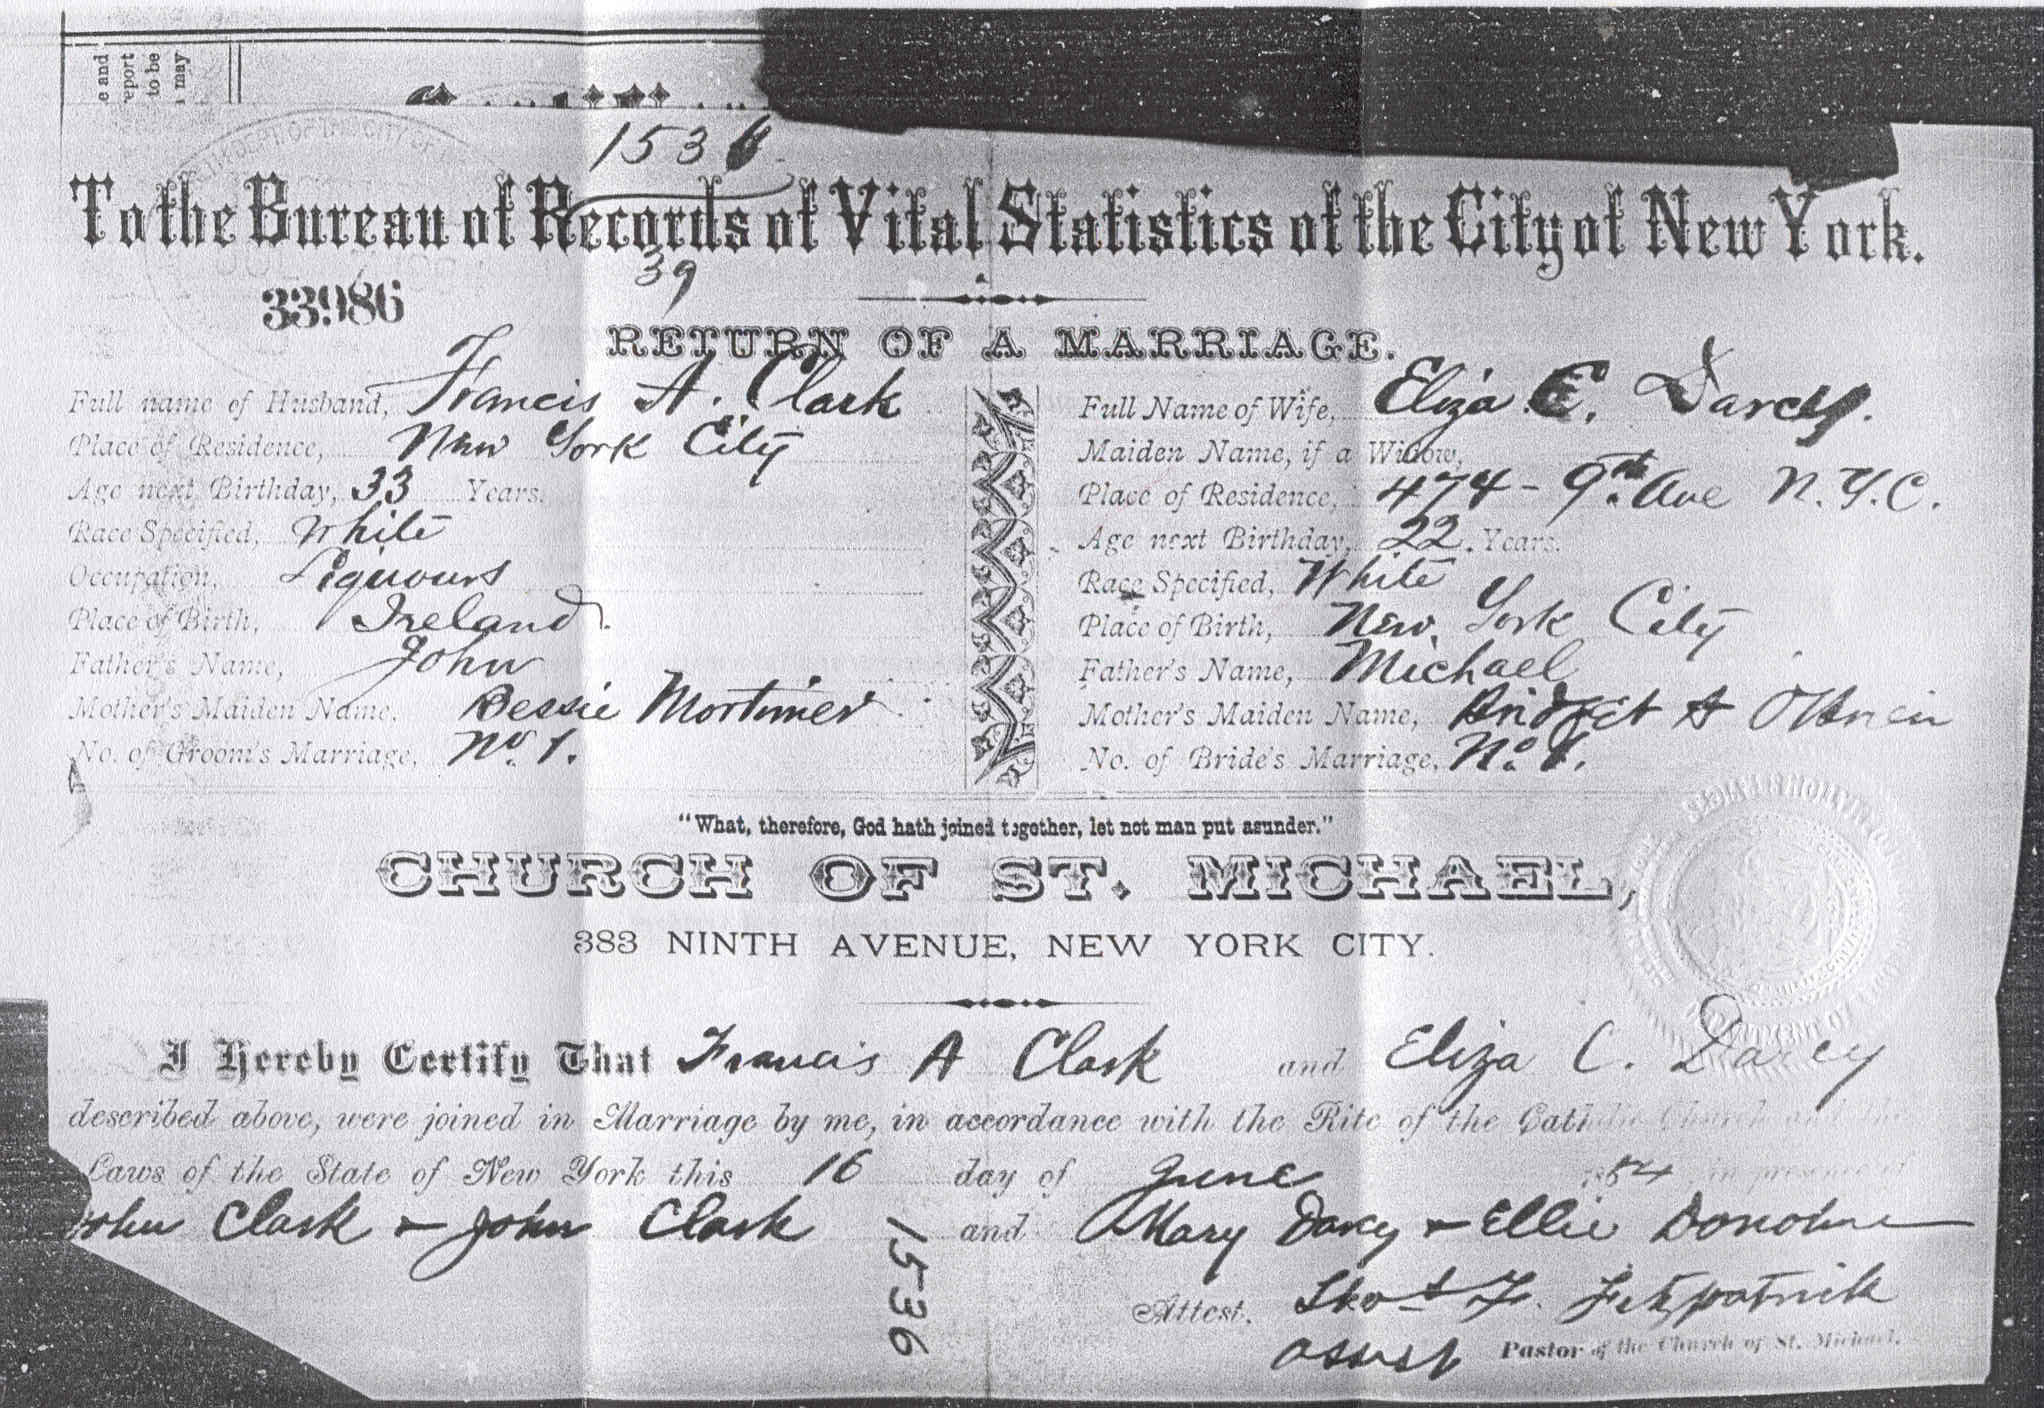 e and
eport
to be
may
1536
To the Bureau of Records of Vital Statistics of the City of New York.
39
33986
RETURN OF A MARRIAGE.
Full name of Husband, Francis A. Clark
Place of Residence, New York City
Age next Birthday, 33 Years.
Race Specified, White
Occupation, Liquours
Place of Birth, Ireland
Father's Name, John
Mother's Maiden Name, Bessie Mortimer
No. of Groom's Marriage, No. 1.
Full Name of Wife, Eliza C. Darcy.
Maiden Name, if a Widow,
Place of Residence, 474 - 9th Ave N.Y.C.
Age next Birthday, 22 Years.
Race Specified, White
Place of Birth, New York City
Father's Name, Michael
Mother's Maiden Name, Bridget A O'Brien
No. of Bride's Marriage, No. 1.
"What, therefore, God hath joined together, let not man put asunder."
CHURCH OF ST. MICHAEL,
383 NINTH AVENUE, NEW YORK CITY.
I Hereby Certify That Francis A Clark and Eliza C. Darcy
described above, were joined in Marriage by me, in accordance with the Rite of the Catholic Church and the
Laws of the State of New York this 16 day of June 1884, in presence of
John Clark & John Clark and Mary Darcy & Ellie Donohue
1536
Attest. Thos F. Fitzpatrick
Assist Pastor of the Church of St. Michael.